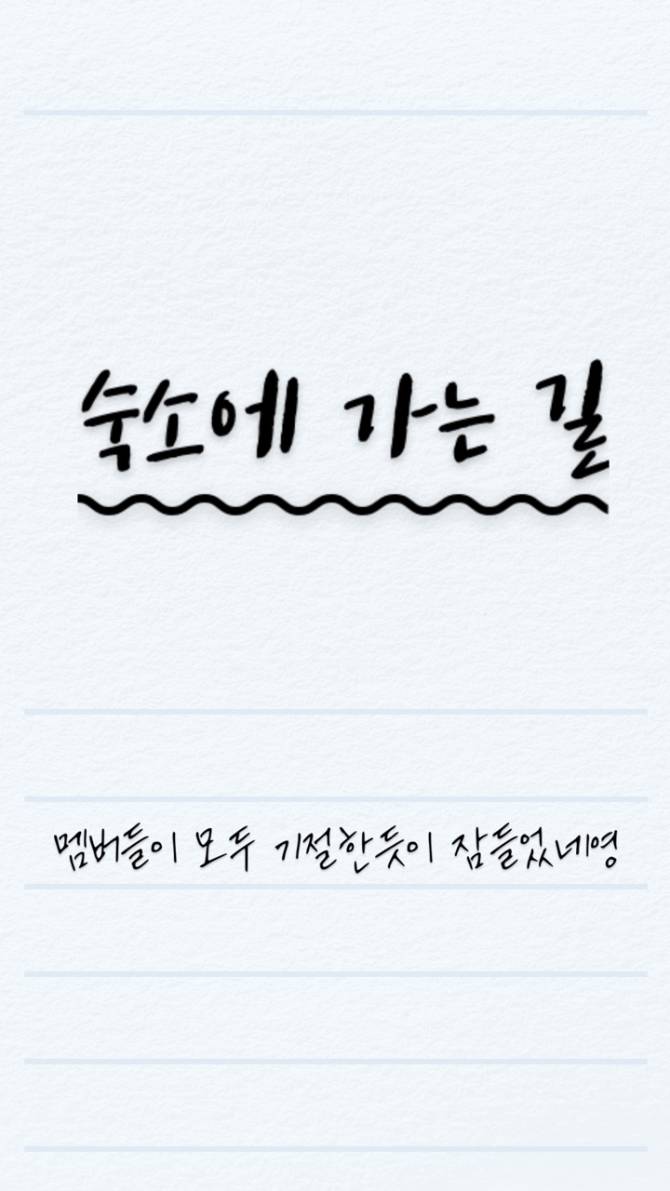 숙소에 가는 길
멤버들이 모두 기절한듯이 잠들었네영